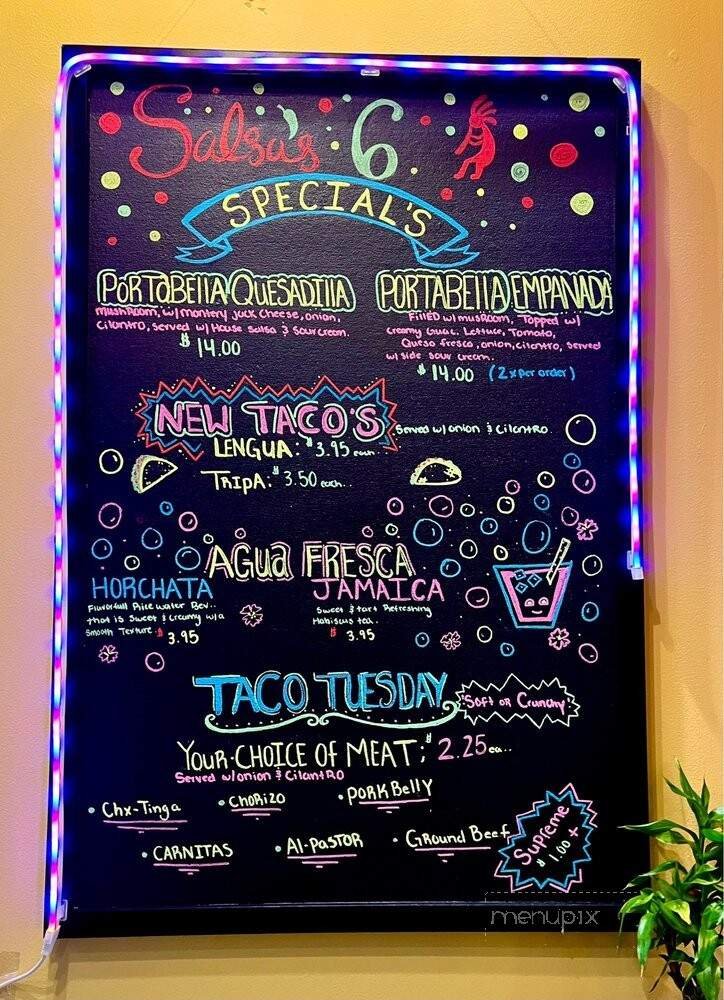 Salsa's 6
SPECIAL'S
PORTABELLA QUESADILLA
mushRoom, w/ montery Jack cheese, onion,
cilantro, served w/ House salsa & sour cream.
$14.00
PORTABELLA EMPANADA
Filled w/ mushRoom, Topped w/
creamy Guac. Lettuce, Tomato,
Queso fresco, onion, cilantro, served
w/ side sour cream.
$14.00 (2x per order)
NEW TACO'S
Served w/ onion & cilantro.
LENGUA: $3.95 each..
TRIPA: $3.50 each..
AGUA FRESCA
HORCHATA
Flavorfull Rice water Bev..
that is sweet & creamy w/a
smooth Texture. $3.95
JAMAICA
sweet & tart Refreshing
Habiscus tea.
$3.95
TACO TUESDAY
"Soft or Crunchy"
YOUR CHOICE OF MEAT; $2.25 ea..
Served w/ onion & cilantRO
• Chx-Tinga
• CHORIZO
• PORK BELLY
• CARNITAS
• Al-PASTOR
• Ground Beef
Supreme
$1.00 +
menupix